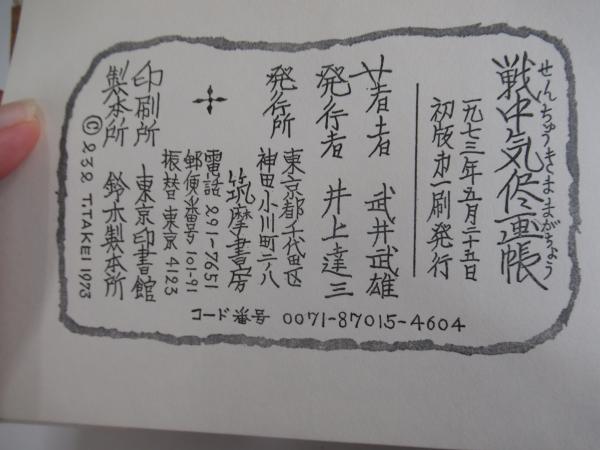 せんちゅうきままがちょう
戦中気侭画帳
一九七三年五月二十五日
初版第一刷発行
著者 武井武雄
発行者 井上達三
発行所 筑摩書房
東京都千代田区
神田小川町二ノ八
電話 291-7651
郵便番号 101-91
振替 東京 4123
印刷所 東京印書館
製本所 鈴木製本所
© 232 T.TAKEI 1973
コード番号 0071-87015-4604